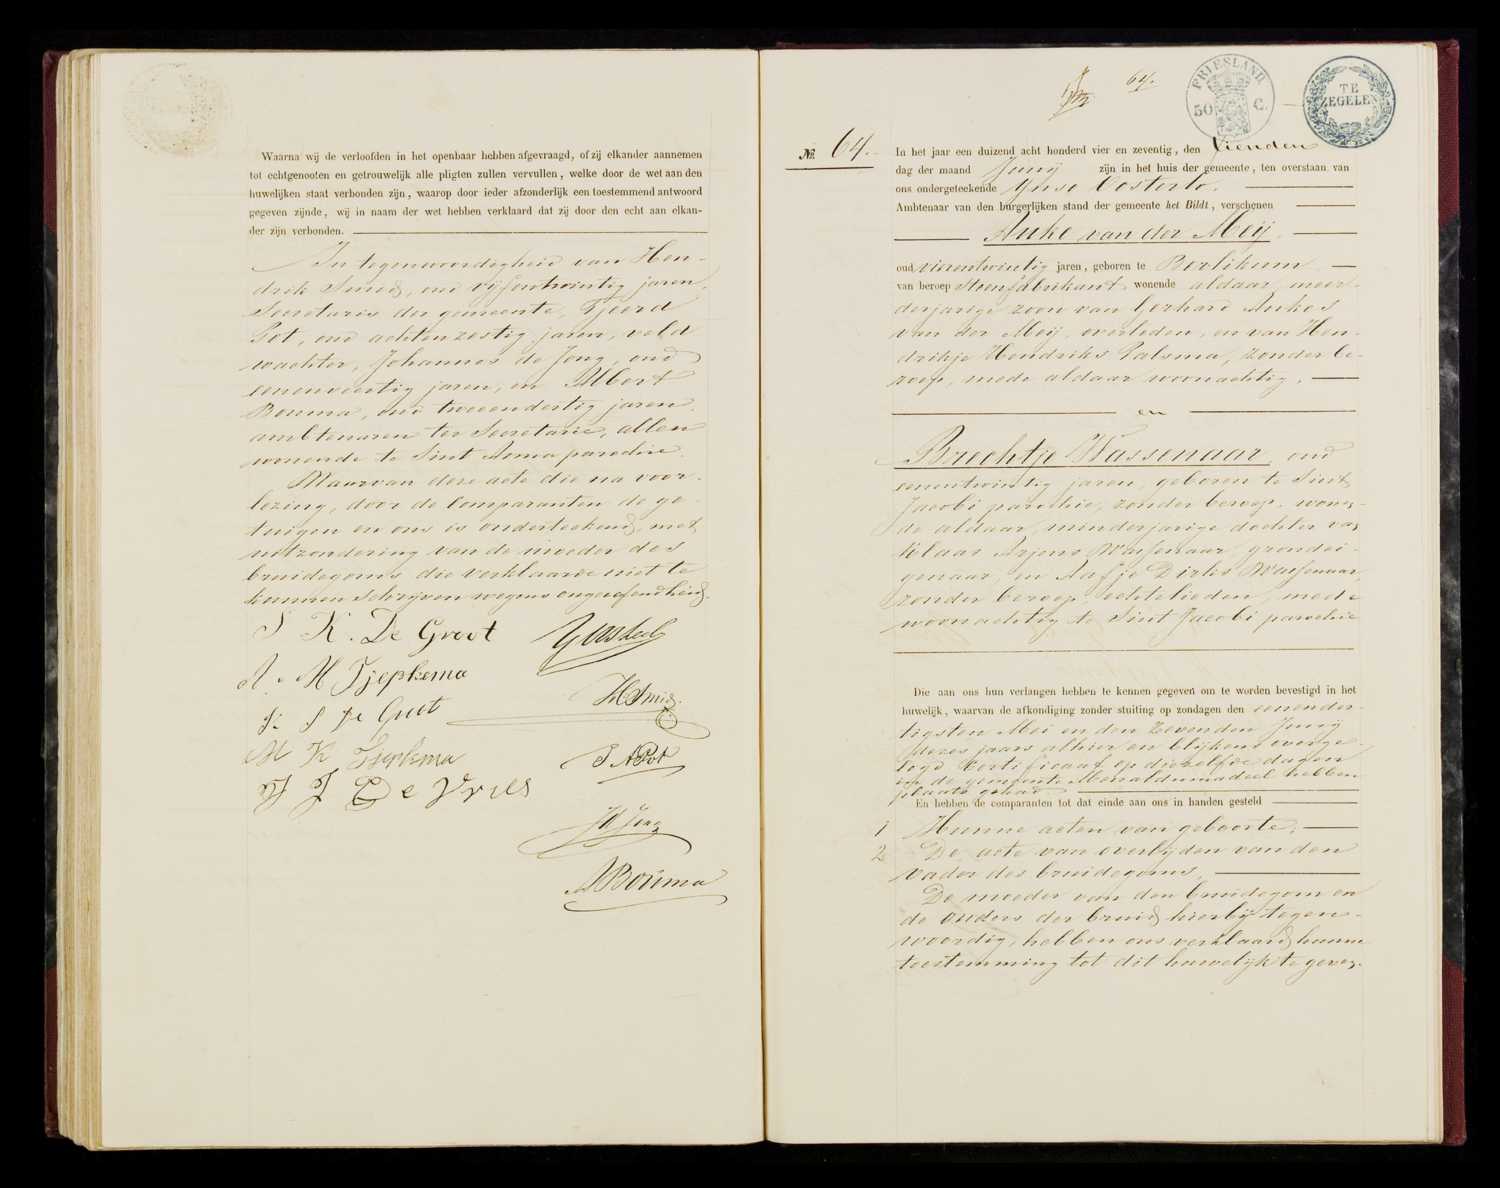 Waarna wij de verloofden in het openbaar hebben afgevraagd, of zij elkander aannemen
tot echtgenooten en getrouwelijk alle pligten zullen vervullen, welke door de wet aan den
huwelijken staat verbonden zijn, waarop door ieder afzonderlijk een toestemmend antwoord
gegeven zijnde, wij in naam der wet hebben verklaard dat zij door den echt aan elkan-
der zijn verbonden.
In tegenwoordigheid van Hen-
drik Smids, oud vijfentwintig jaren,
Secretaris der gemeente, Tjeerd
Pot, oud achtenzestig jaren, veld
wachter, Johannes de Jong, oud
eenenveertig jaren, en Albert
Bouma, oud tweeendertig jaren,
ambtenaren ter Secretarie, allen
wonende te Sint Anna parochie.
Waarvan deze acte die na voor-
lezing, door de Comparanten de ge-
tuigen en ons is onderteekend, met
uitzondering van de moeder des
bruidegoms die verklaarde niet te
kunnen schrijven wegens ongeoefendheid.
S K. De Groot
A. H Tjepkema
S. S De Groot
M K Tjepkema
J De Vries
HSmids
JdJong
ABouma
64.
FRIESLAND
50 C.
TE
ZEGELEN
No. 64.
In het jaar een duizend acht honderd vier en zeventig, den tienden
dag der maand Junij zijn in het huis der gemeente, ten overstaan van
ons ondergeteekende Ynso Oosterlo.
Ambtenaar van den burgerlijken stand der gemeente het Bildt, verschenen
Anke van der Meij
oud vierentwintig jaren, geboren te Berlikum
van beroep Steenfabrikant, wonende aldaar, meer-
derjarige zoon van Gerhard Ankes
van der Meij, overleden, en van Hen-
drikje Hendriks Palsma, zonder be-
roep, mede aldaar woonachtig.
en
Brechtje Wassenaar, oud
eenentwintig jaren, geboren te Sint
Jacobi parochie, zonder beroep, wonen-
de aldaar, minderjarige dochter van
Klaas Arjens Wassenaar, grondei-
genaar, en Aafje Dirks Wassenaar,
zonder beroep, echtelieden, mede
woonachtig te Sint Jacobi parochie
Die aan ons hun verlangen hebben te kennen gegeven om te worden bevestigd in het
huwelijk, waarvan de afkondiging zonder stuiting op zondagen den eenender-
tigsten Mei en den zevenden Junij
dezes jaars alhier en blijkens overge-
legd Certificaat op diezelfde dagen
in de gemeente Menaldumadeel hebben
plaats gehad
En hebben de comparanten tot dat einde aan ons in handen gesteld
1 Hunne acten van geboorte.
2 De acte van overlijden van den
vader des bruidegoms.
De moeder van den bruidegom en
de ouders der bruid hierbij tegen-
woordig, hebben ons verklaard hunne
toestemming tot dit huwelijk te geven.